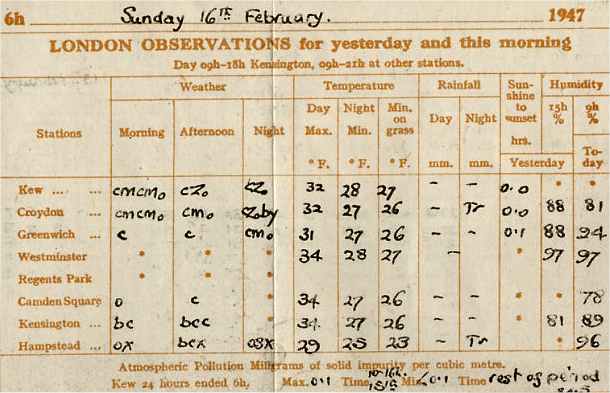 6h Sunday 16TH February. 1947
LONDON OBSERVATIONS for yesterday and this morning
Day 09h-18h Kensington, 09h-21h at other stations.
Stations Weather Temperature Rainfall Sun-shine to sunset Humidity
Morning Afternoon Night Day Max. Night Min. Min. on grass Day Night hrs. 15h % 9h %
° F. ° F. ° F. mm. mm. Yesterday To-day
Kew ... ... cmcmo czo czo 32 28 27 - - 0.0 * *
Croydon ... cmcmo cmo czoby 32 27 26 - Tr 0.0 88 81
Greenwich ... c c cmo 31 27 26 - - 0.1 88 94
Westminster * * * 34 28 27 - * 97 97
Regents Park * * *
Camden Square o c * 34 27 26 - - * * 78
Kensington ... bc bcc * 34 27 26 - - * 81 89
Hampstead ... ox bcx 29 25 23 - Tr * 96
Atmospheric Pollution Milligrams of solid impurity per cubic metre.
Kew 24 hours ended 6h, Max. 0.1 Time 10-16h. Min. <0.1 Time rest of period